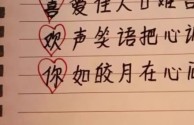 喜爱住人口难
欢声笑语把心
你如皎月在心